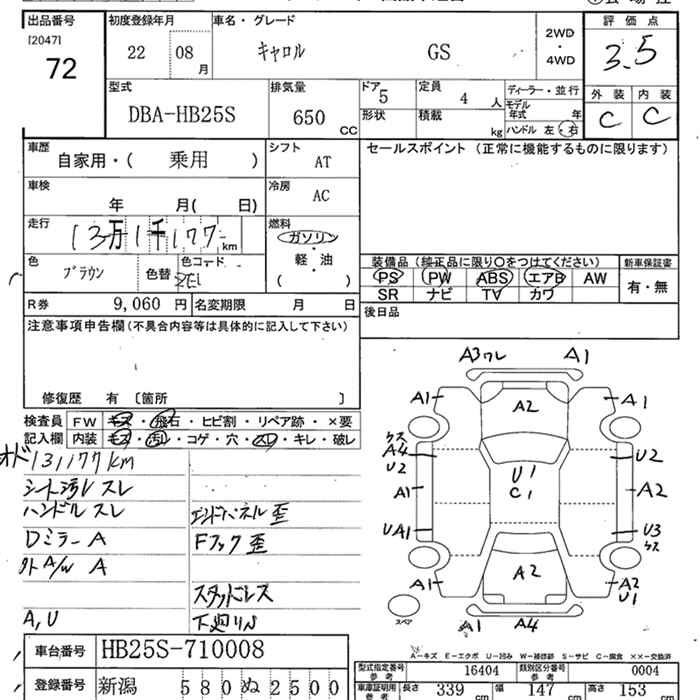 出品番号
[2047]
72
初度登録年月
22 08 月
車名・グレード
キャロル GS
2WD
・
4WD
評価点
3.5
外装 内装
C C
型式
DBA-HB25S
排気量
650 CC
ドア 5
形状
定員 4 人
積載 kg
ディーラー・並行
モデル年式 年
ハンドル 左・右
車歴
自家用・( 乗用 )
シフト AT
セールスポイント (正常に機能するものに限ります)
車検
年 月( 日)
冷房 AC
走行
13万1千177 km
燃料
ガソリン
軽・油
( )
色 ブラウン 色替 色コード ZEJ
装備品 (純正品に限り○をつけてください)
新車保証書
PS PW ABS エアB AW
SR ナビ TV カワ
有・無
R券 9,060 円 名変期限 月 日
後日品
注意事項申告欄 (不具合内容等は具体的に記入して下さい)
修復歴 有 〔箇所 〕
検査員記入欄
FW キズ・飛石・ヒビ割・リペア跡・×要
内装 モス・汚レ・コゲ・穴・スレ・キレ・破レ
オド 131177km
シート汚レ スレ
ハンドル スレ
エンドパネル 歪
Dミラー A
Fフック 歪
外A/W A
スタッドレス
A,U
下廻りS
A3ワレ A1
A1 A2 A1
キズ
A4 U2
U2
U1
A1 C1 A2
UA1 U3
キズ
A2
A1 A2
U1
スペア
A1 A4
A－キズ E－エクボ U－凹み W－補修跡 S－サビ C－腐食 ××－交換済
車台番号 HB25S-710008
型式指定番号 参考 16404 類別区分番号 参考 0004
登録番号 新潟 580 ぬ 2500
車庫証明用 参考 長さ 339 cm 幅 147 cm 高さ 153 cm